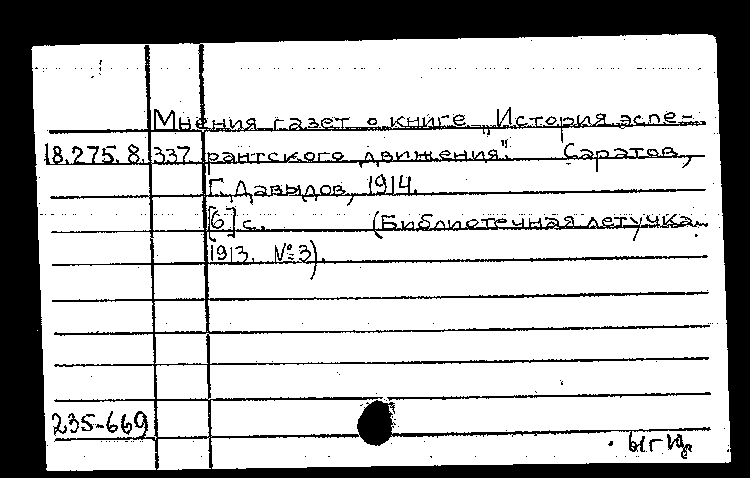 Мнения газет о книге „История эспе-
18.275.8.337 рантского движения". Саратов,
Г. Давыдов, 1914.
[6] с. (Библиотечная летучка.
1913. № 3).
235-669